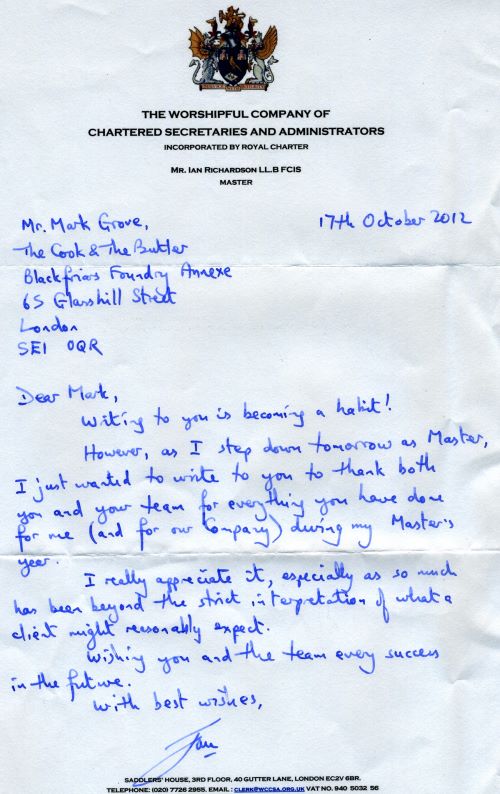 THE WORSHIPFUL COMPANY OF
CHARTERED SECRETARIES AND ADMINISTRATORS
INCORPORATED BY ROYAL CHARTER
MR. IAN RICHARDSON LL.B FCIS
MASTER
Mr. Mark Grove,
17th October 2012
The Cook & The Butler
Blackfriars Foundry Annexe
65 Glasshill Street
London
SE1 0QR
Dear Mark,
Writing to you is becoming a habit!
However, as I step down tomorrow as Master,
I just wanted to write to you to thank both
you and your team for everything you have done
for me (and for our Company) during my Master's
year.
I really appreciate it, especially as so much
has been beyond the strict interpretation of what a
client might reasonably expect.
Wishing you and the team every success
in the future.
With best wishes,
Ian
SADDLERS' HOUSE, 3RD FLOOR, 40 GUTTER LANE, LONDON EC2V 6BR.
TELEPHONE: (020) 7726 2955. EMAIL : CLERK@WCCSA.ORG.UK VAT NO. 940 5032 56